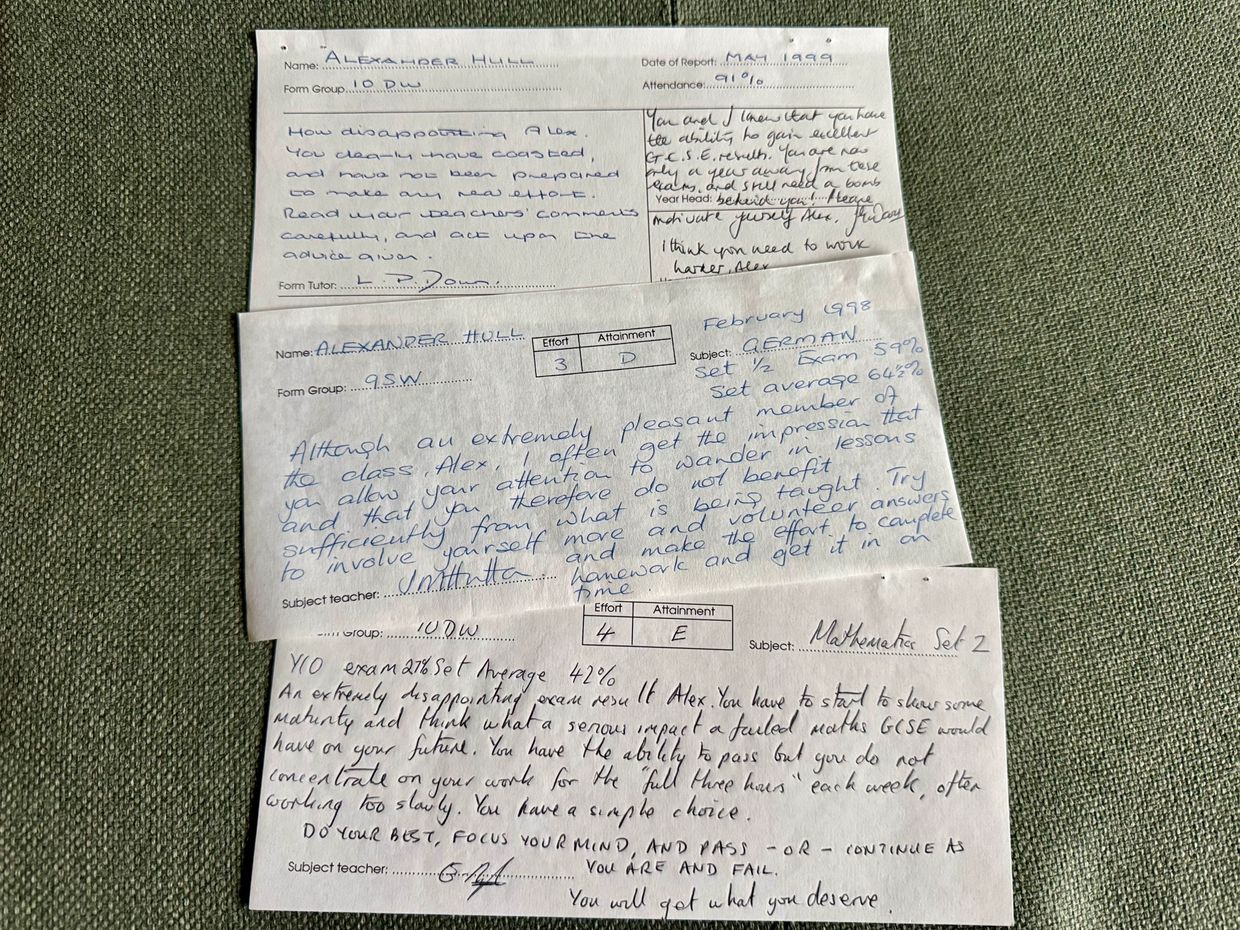 Name: ALEXANDER HULL
Date of Report: MAY 1999
Form Group 10 DW
Attendance: 91%
How disappointing Alex.
You clearly have coasted,
and have not been prepared
to make any real effort.
Read your teachers' comments
carefully, and act upon the
advice given.
Form Tutor: L. P. Down.
You and I know that you have
the ability to gain excellent
G.C.S.E. results. You are now
only a year away from these
exams, and still need a bomb
Year Head: behind you! Please
motivate yourself Alex.
I think you need to work
harder, Alex
Name: ALEXANDER HULL
Effort Attainment
3 D
February 1998
Subject: GERMAN
Form Group: 9SW
Set 1/2 Exam 59%
Set average 64½%
Although an extremely pleasant member of
the class, Alex, I often get the impression that
you allow your attention to wander in lessons
and that you therefore do not benefit
sufficiently from what is being taught. Try
to involve yourself more and volunteer answers
and make the effort to complete
homework and get it in on
time.
Subject teacher:
Group: 10 DW
Effort Attainment
4 E
Subject: Mathematics Set 2
Y10 exam 27% Set Average 42%
An extremely disappointing exam result Alex. You have to start to show some
maturity and think what a serious impact a failed maths GCSE would
have on your future. You have the ability to pass but you do not
concentrate on your work for the "full three hours" each week, often
working too slowly. You have a simple choice.
DO YOUR BEST, FOCUS YOUR MIND, AND PASS - OR - CONTINUE AS
YOU ARE AND FAIL.
Subject teacher:
You will get what you deserve.